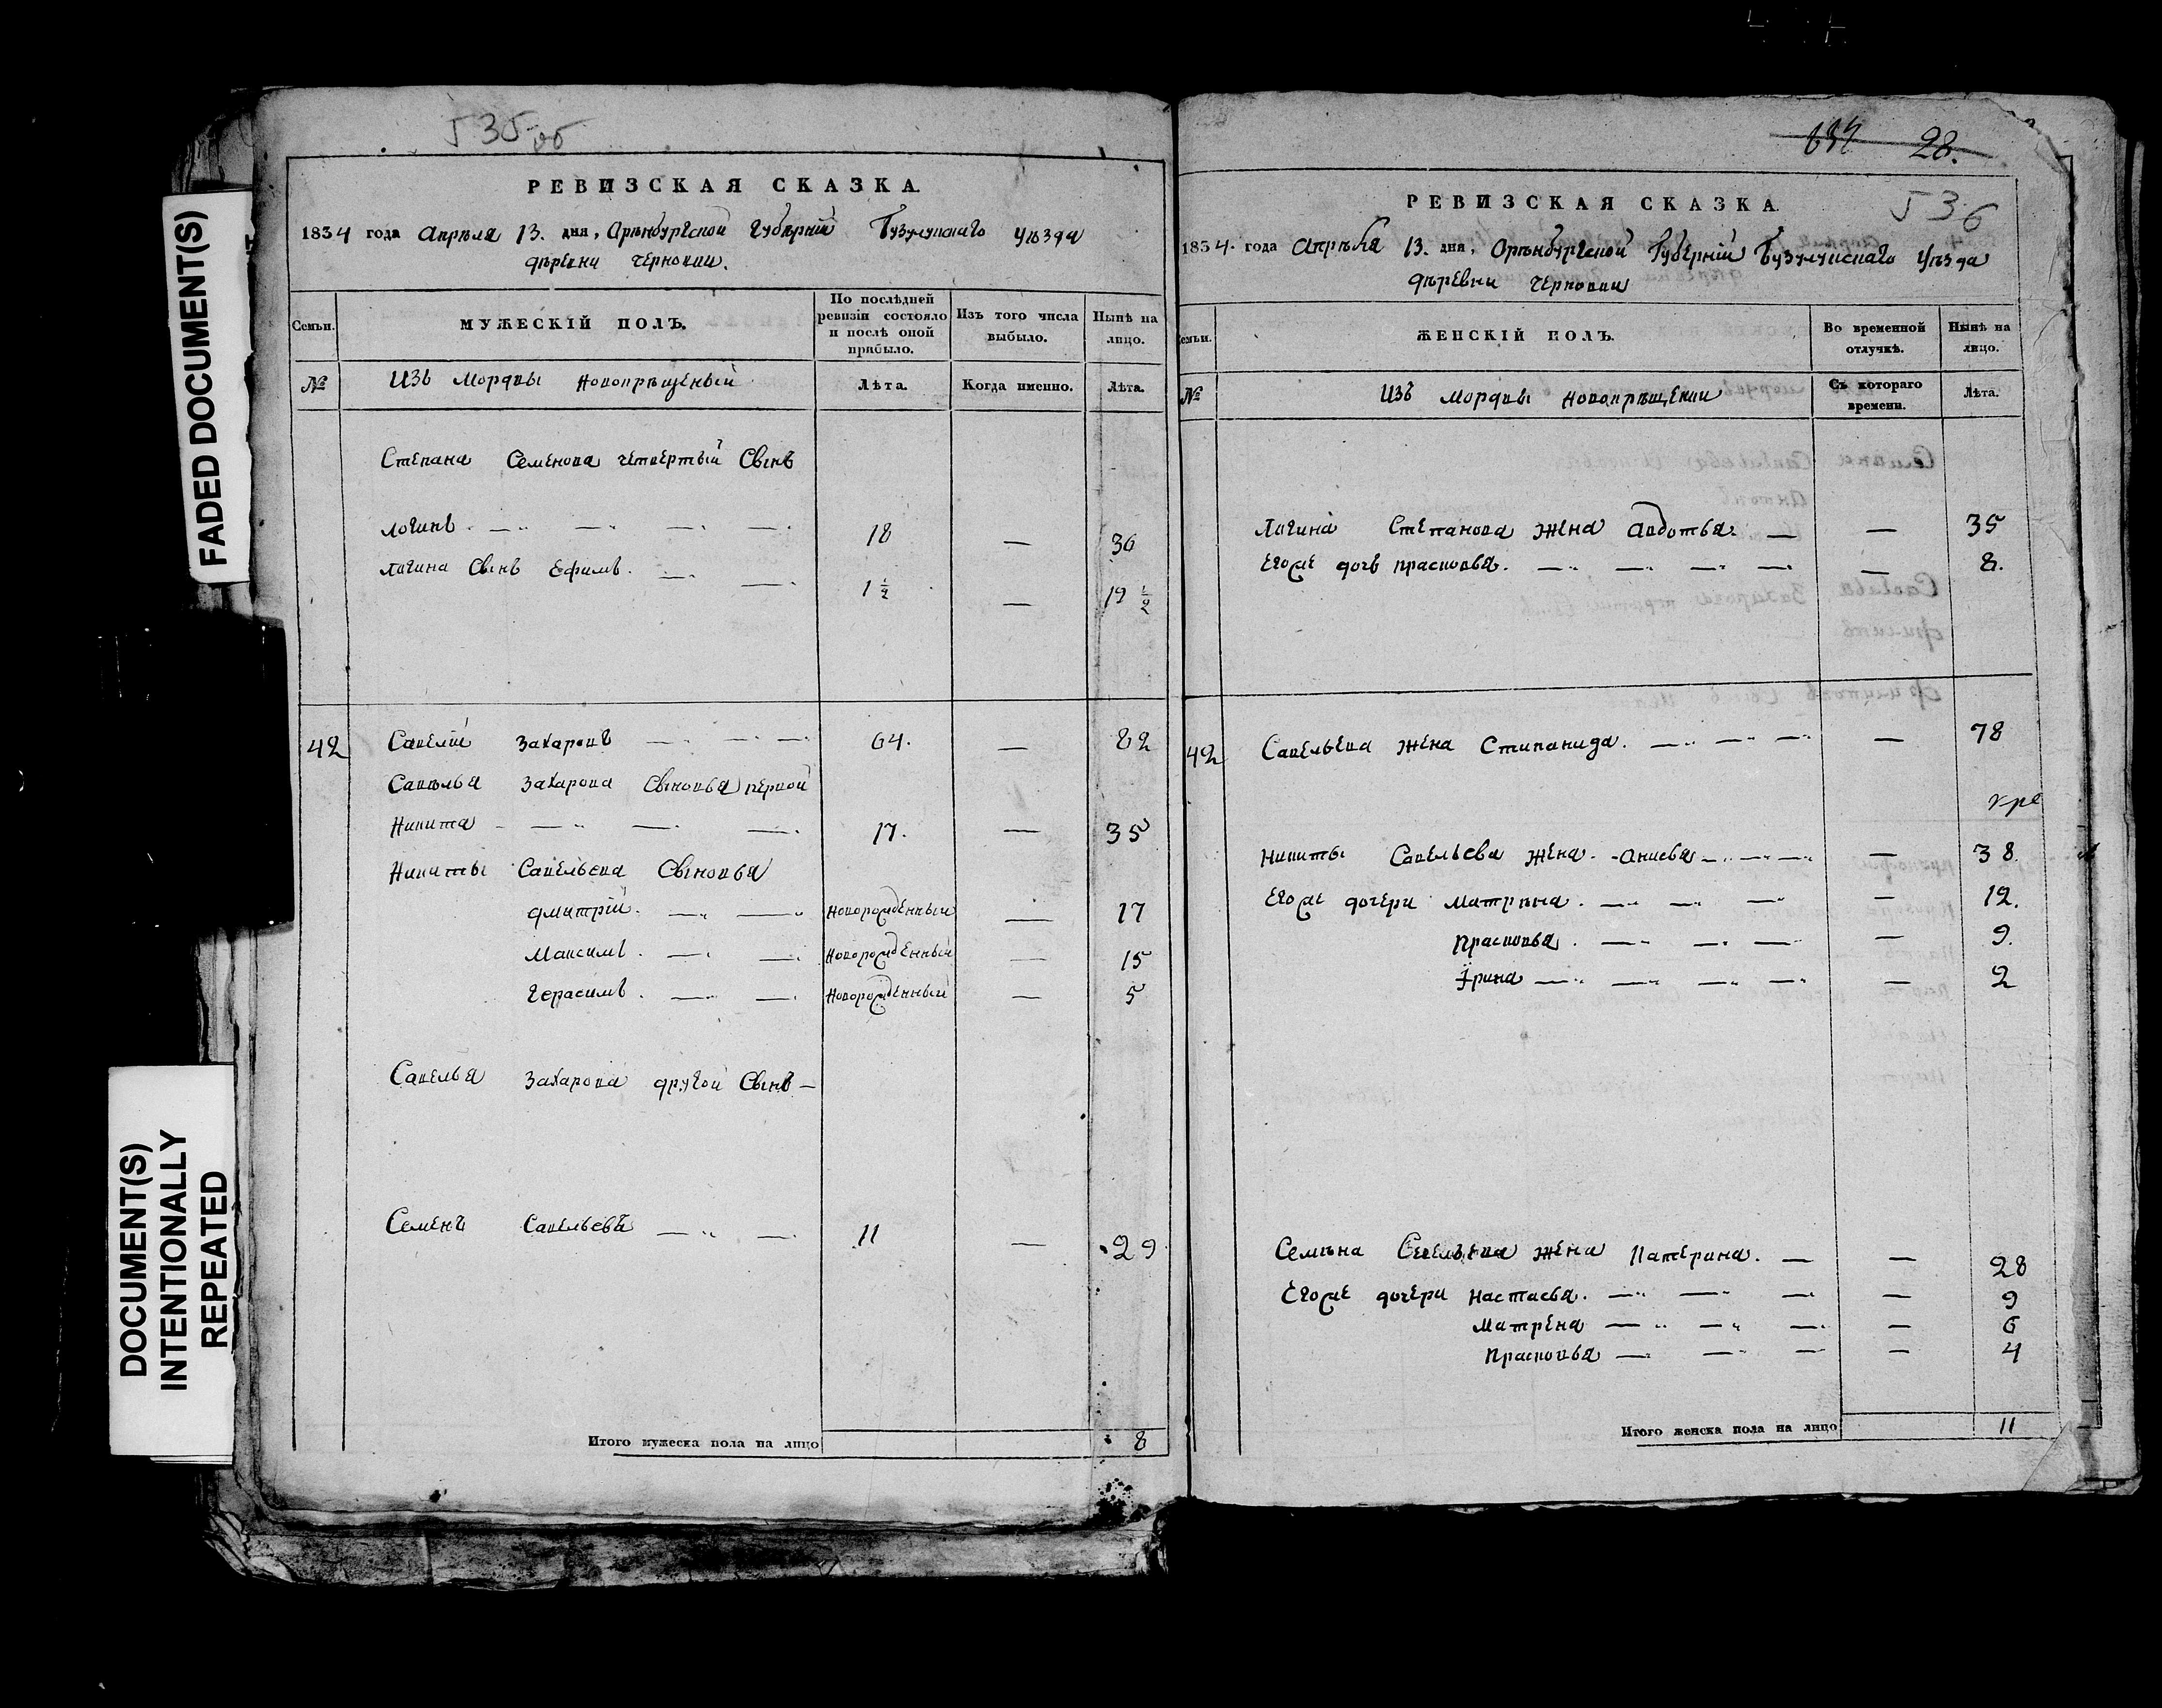 FADED DOCUMENT(S)
DOCUMENT(S)
INTENTIONALLY
REPEATED
535 об
РЕВИЗСКАЯ СКАЗКА.
1834 года Апрѣля 13. дня, Орѣнбургской губѣрніи Бузулускаго уѣзда
дѣревни черновки.
Семьи.
МУЖЕСКІЙ ПОЛЪ.
По послѣдней ревизіи состояло и послѣ оной прибыло.
Изъ того числа выбыло.
Нынѣ на лицо.
№
Изъ Мордвы новокрѣщеный
Лѣта.
Когда именно.
Лѣта.
Степана Семенова четвертый Сынъ
логинъ — 18 — 36
логина Сынъ Ефимъ. — 1 ½ — 19 ½
42 Савелій Захаровъ — 64. — 82
Савелья Захарова Сыновья первой
Никита — 17. — 35
Никиты Савельева Сыновья
дмитрій. — новорожденный — 17
Максимъ. — новорожденный — 15
герасимъ. — новорожденный — 5
Савелья Захарова другой Сынъ —
Семенъ Савельевъ — 11 — 29
Итого мужеска пола на лицо 8
28.
536
РЕВИЗСКАЯ СКАЗКА.
1834. года Апрѣля 13. дня, Орѣнбургской Губерніи Бузулускаго уѣзда
дѣревни черновки
Семьи.
ЖЕНСКІЙ ПОЛЪ.
Во временной отлучкѣ.
Нынѣ на лицо.
№
Изъ Мордвы новокрѣщении
Съ котораго времени.
Лѣта.
Логина Степанова жена Авдотья. — — 35
Егоже дочь прасковья. — — 8.
42 Савельева жена Стипанида. — — 78
Никиты Савельева жена Анисья — — 38.
Егоже дочери Матрѣна. — — 12.
Прасковья. — — 9.
Ірина — — 2
Семѣна Савельева жена Катерина. — — 28
Егоже дочери Настасья. — — 9
Матрена — — 6
Прасковья — — 4
Итого женска пола на лицо 11